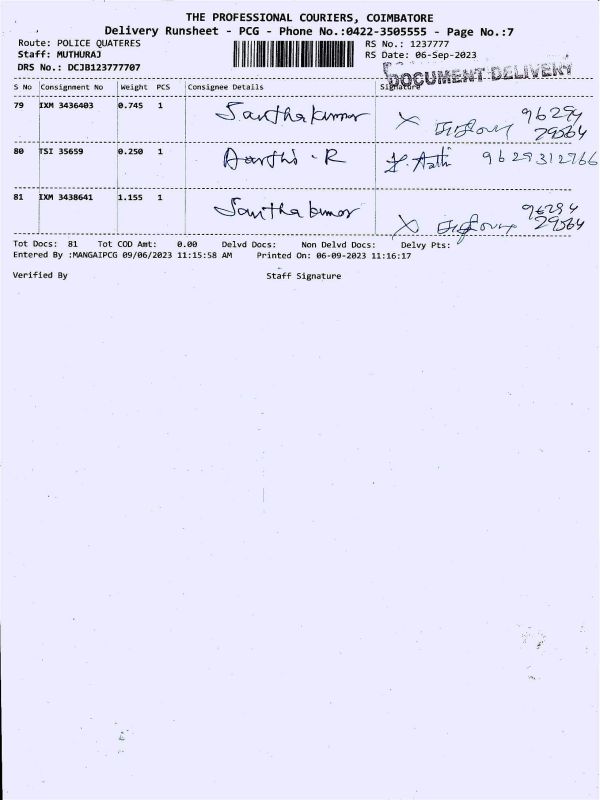 THE PROFESSIONAL COURIERS, COIMBATORE
Delivery Runsheet - PCG - Phone No.:0422-3505555 - Page No.:7
Route: POLICE QUATERES RS No.: 1237777
Staff: MUTHURAJ RS Date: 06-Sep-2023
DRS No.: DCJB123777707
DOCUMENT DELIVERY
S No Consignment No Weight PCS Consignee Details Signature
79 IXM 3436403 0.745 1 Santhakumar 96294
29564
80 TSI 35659 0.250 1 Aarthi . R 9629312766
81 IXM 3438641 1.155 1 Santhakumar 96294
29564
Tot Docs: 81 Tot COD Amt: 0.00 Delvd Docs: Non Delvd Docs: Delvy Pts:
Entered By :MANGAIPCG 09/06/2023 11:15:58 AM Printed On: 06-09-2023 11:16:17
Verified By Staff Signature